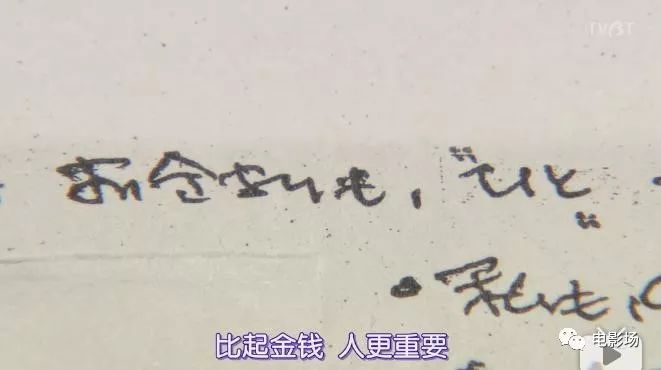 TVBT
お金よりも, “ひと”
• 私も,
比起金钱 人更重要
电影场